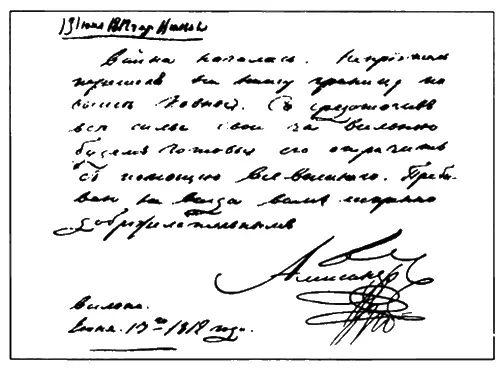 13 Июня 1812 гор. Вильна
Война началась. Непріятель
перешелъ на нашу границу на
близь Ковны. Сосредоточивъ
всѣ силы свои за Вильною
будемъ готовы его отразить
съ помощію Всевышняго. Пребы-
ваю на всегда вамъ искренно
доброжелательнымъ
Александръ
Вильна.
Июня 13го 1812 года.